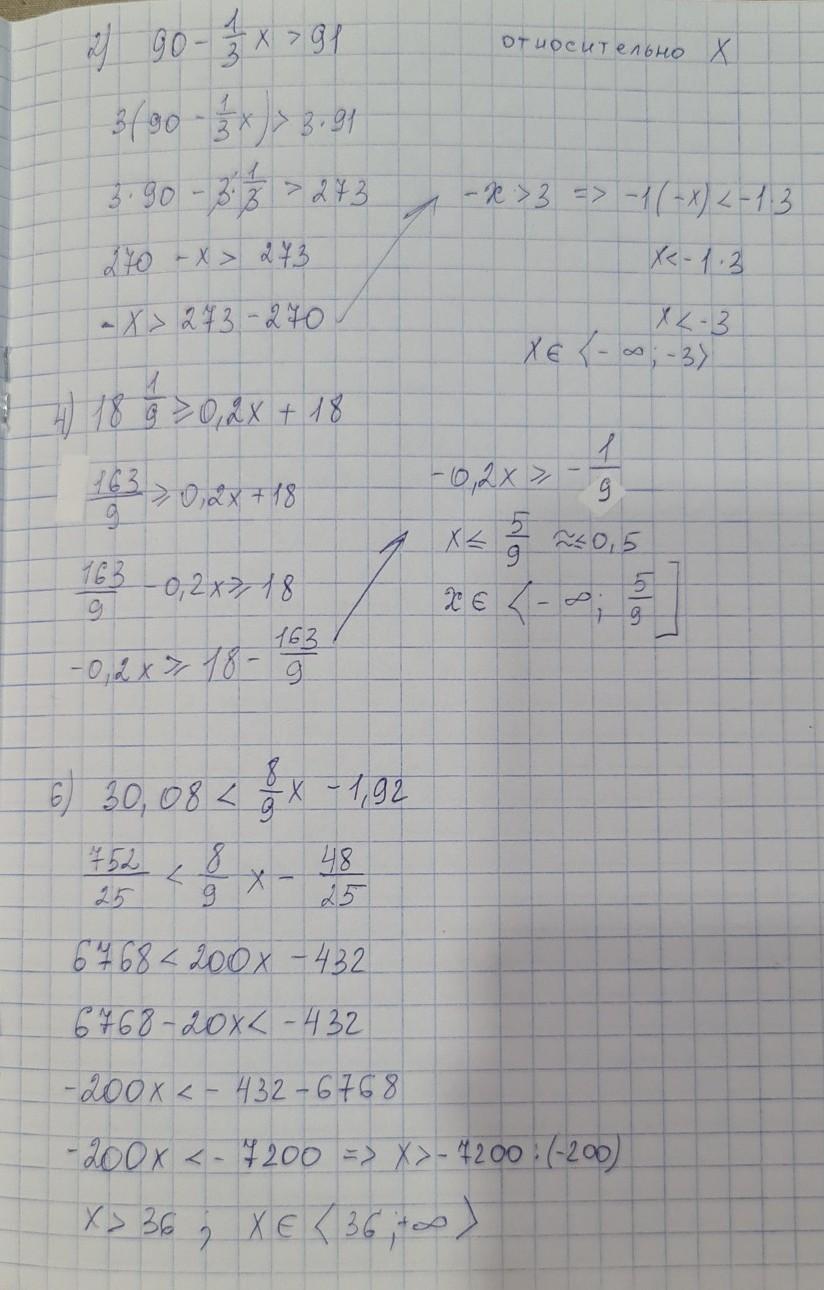 2) 90 - 1/3 x > 91
относительно X
3(90 - 1/3 x) > 3·91
3·90 - 3·1/3 > 273
270 - x > 273
-x > 273 - 270
-x > 3 => -1(-x) < -1·3
x < -1·3
x < -3
x ∈ ⟨-∞; -3⟩
4) 18 1/9 ⩾ 0,2x + 18
163/9 ⩾ 0,2x + 18
163/9 - 0,2x ⩾ 18
-0,2x ⩾ 18 - 163/9
-0,2x ⩾ -1/9
x ⩽ 5/9 ≈⩽ 0,5
x ∈ ⟨-∞; 5/9]
6) 30,08 < 8/9 x - 1,92
752/25 < 8/9 x - 48/25
6768 < 200x - 432
6768 - 20x < -432
-200x < -432 - 6768
-200x < -7200 => x > -7200:(-200)
x > 36 ; x ∈ ⟨36; +∞⟩